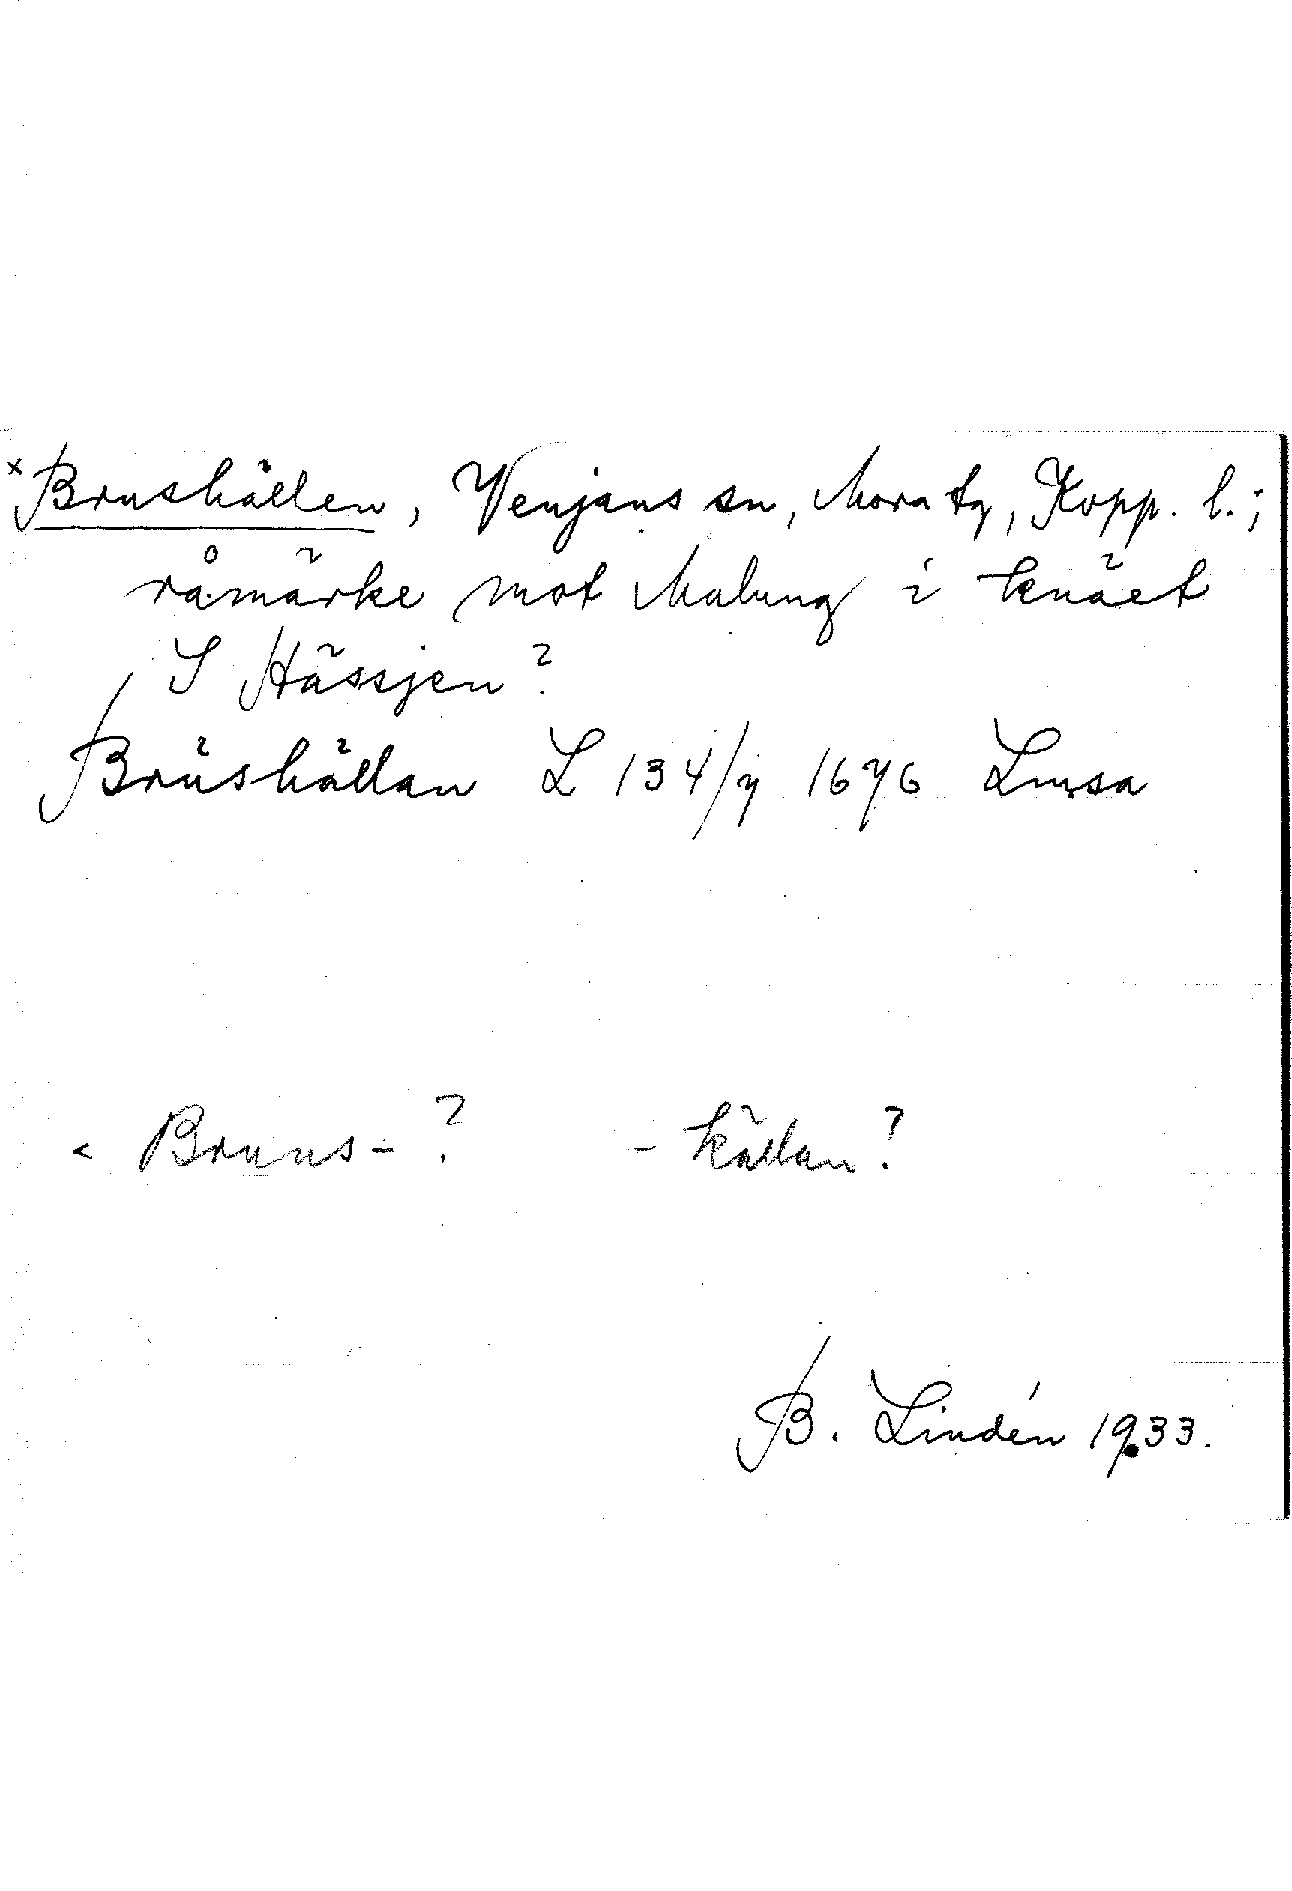 × Brushällen, Venjans sn, Mora tg, Kopp. l.;
råmärke mot Malung i knäet
S Hässjen?
Brüshällan L 134/7 1676 Lmsa
< Bruns-? - källan?
B. Lindén 1933.